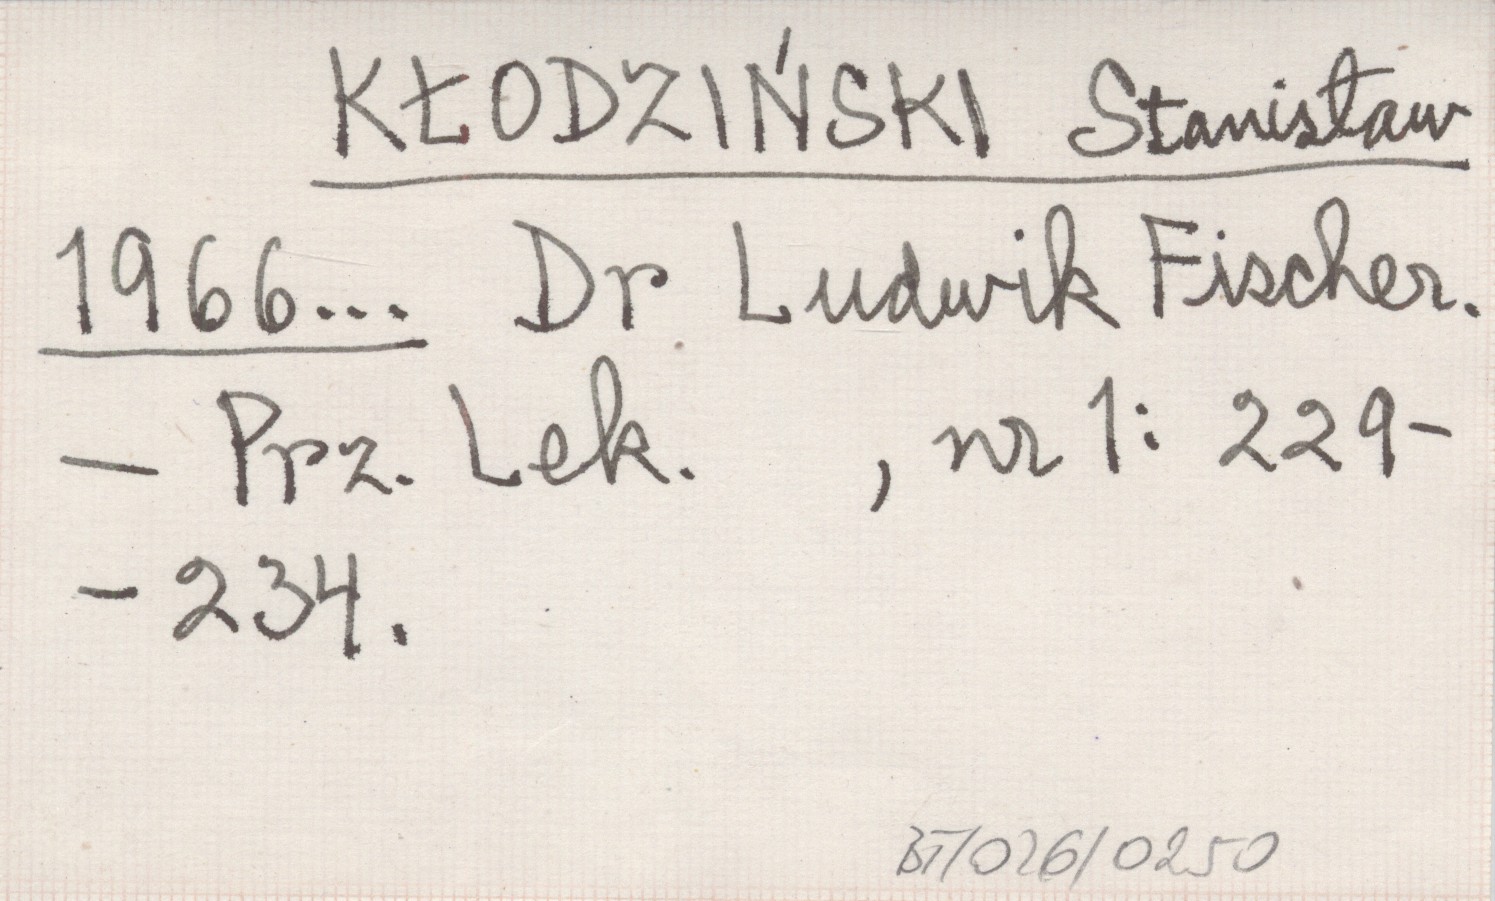 KŁODZIŃSKI Stanisław
1966... Dr Ludwik Fischer.
— Prz. Lek. , nr 1: 229-
- 234.
BT/026/0250